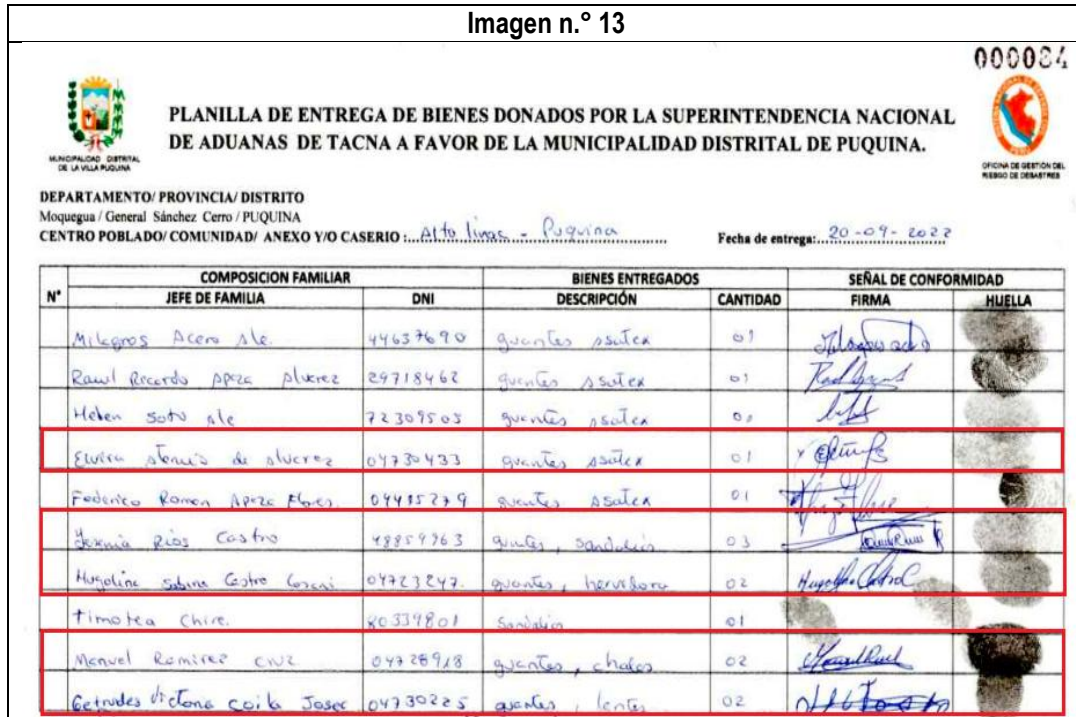 Imagen n.° 13
000034
MUNICIPALIDAD DISTRITAL
DE LA VILLA PUQUINA
PLANILLA DE ENTREGA DE BIENES DONADOS POR LA SUPERINTENDENCIA NACIONAL
DE ADUANAS DE TACNA A FAVOR DE LA MUNICIPALIDAD DISTRITAL DE PUQUINA.
OFICINA DE GESTIÓN DEL
RIESGO DE DESASTRES
DEPARTAMENTO/ PROVINCIA/ DISTRITO
Moquegua / General Sánchez Cerro / PUQUINA
CENTRO POBLADO/ COMUNIDAD/ ANEXO Y/O CASERIO: Alto - Puquina Fecha de entrega: 20-09-2022
COMPOSICION FAMILIAR BIENES ENTREGADOS SEÑAL DE CONFORMIDAD
N° JEFE DE FAMILIA DNI DESCRIPCIÓN CANTIDAD FIRMA HUELLA
Milagros Acero Ale 44637690 guantes 01
Raul Ricardo Apaza Alvarez 29718462 guantes 01
Helen Soto Ale 72309505 guantes
Elvira de Alvarez 04730433 guantes 01
Federico Roman Apaza Flores 04415279 guantes 01
Rios Castro 48859963 guantes, sandalias 03
Hugolina Sabina Castro 04723247 guantes, hervidora 02
Timotea Chire. 80339801 Sandalias 01
Manuel Ramirez Cruz 04728918 guantes, 02
Victoria Coila 04730225 guantes, lentes 02